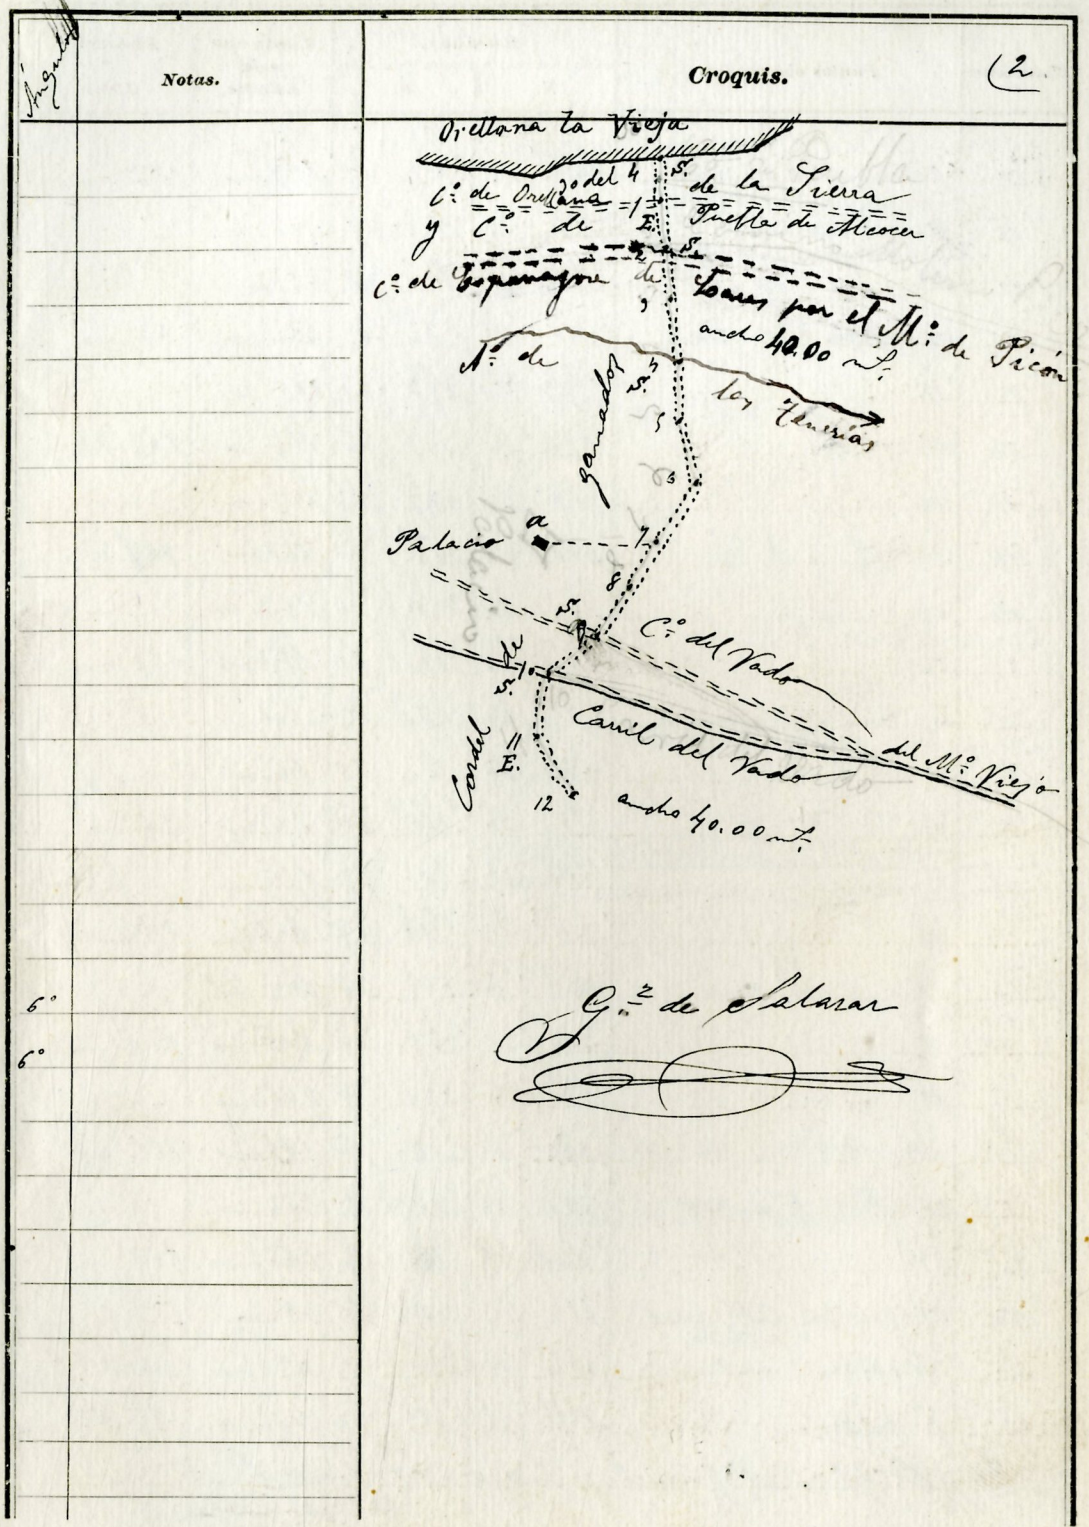 Ángulos
Notas.
Croquis.
(2
Orellana la Vieja
30 del 4
S.
C.º de Orellana
de la Sierra
1
E.
y C.º de
Puebla de Alcocer
2
S.
C.º de Esparragosa de Lares por el M.º de Picón
3
ancho 40.00 m.
A.º de
las Tenerías
4
S.
5
ganados
6
Palacio
a
7
8
S.
C.º del Vado
de
S.
Carril del Vado
del M.º Viejo
Cordel
11
E.
12
ancho 40.00 m.
G.z de Salazar
6º
6º